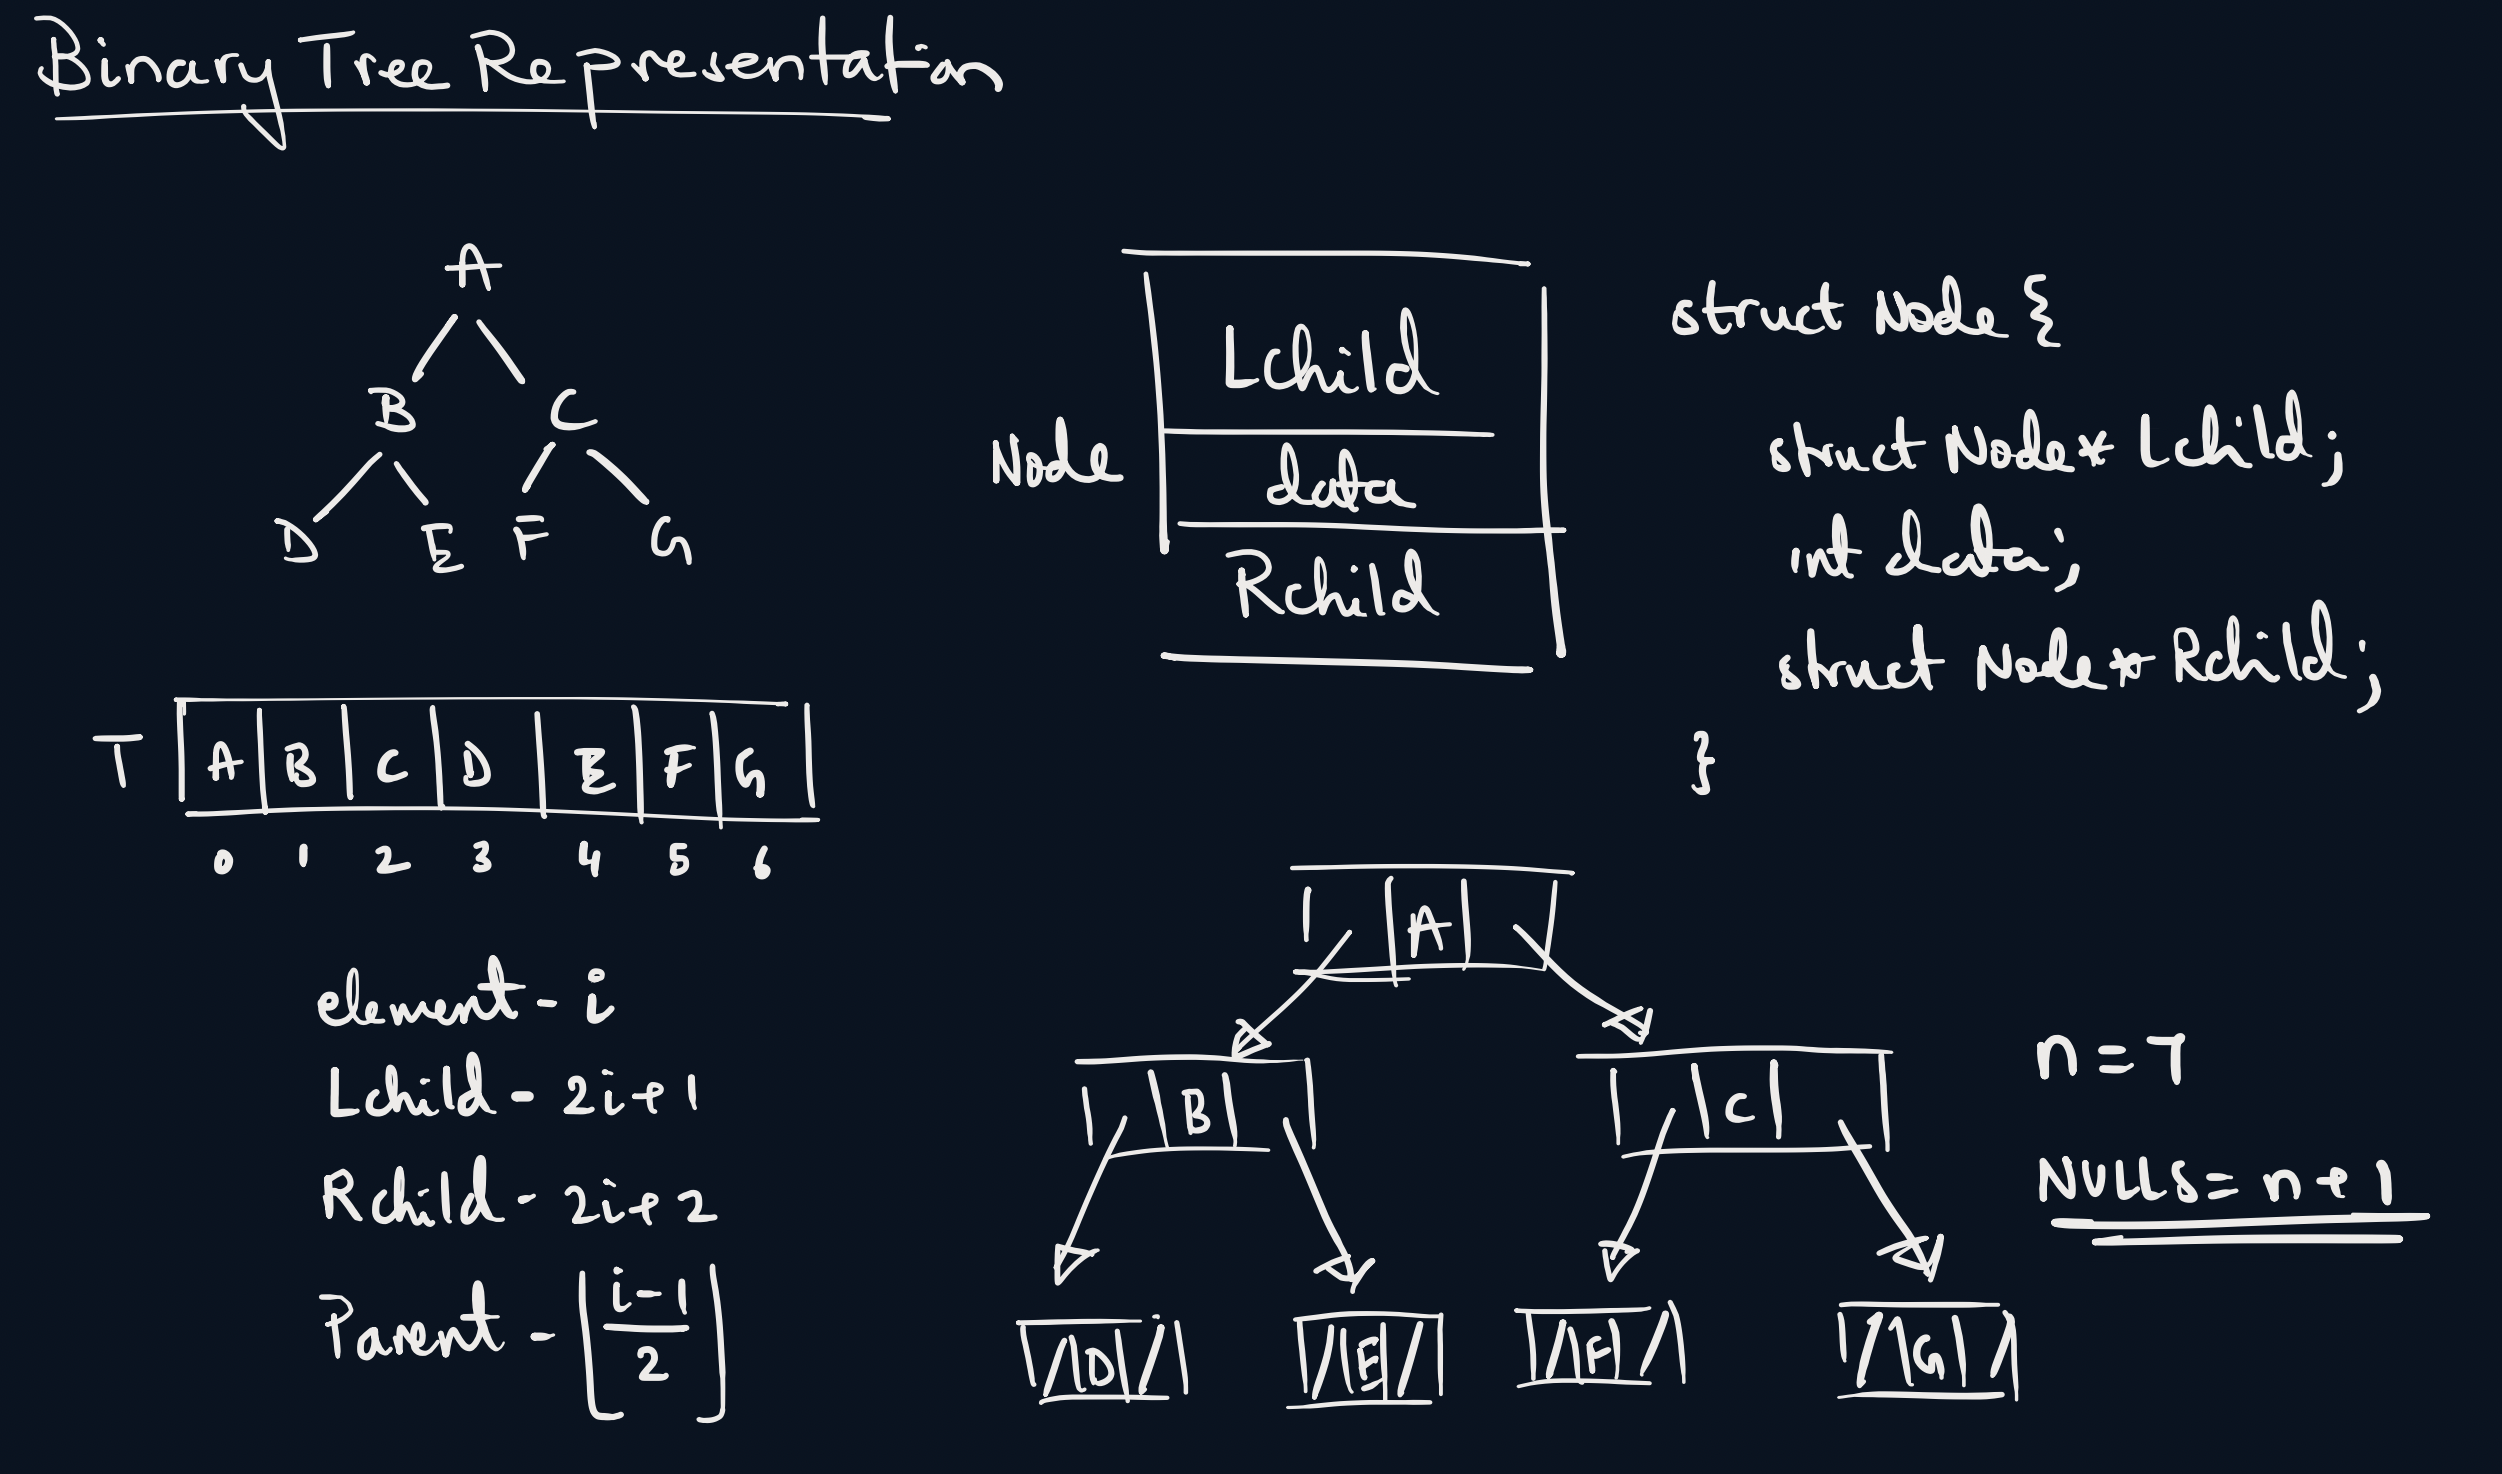 Binary Tree Representation
A
B C
D E F G
T A B C D E F G
0 1 2 3 4 5 6
element - i
Lchild - 2i+1
Rchild - 2i+2
Parent - ⌊i-1
2⌋
Node
Lchild
data
Rchild
struct Node {
struct Node* Lchild;
int data;
struct Node* Rchild;
}
A
B C
D E F G
n = 7
NULLs = n+1